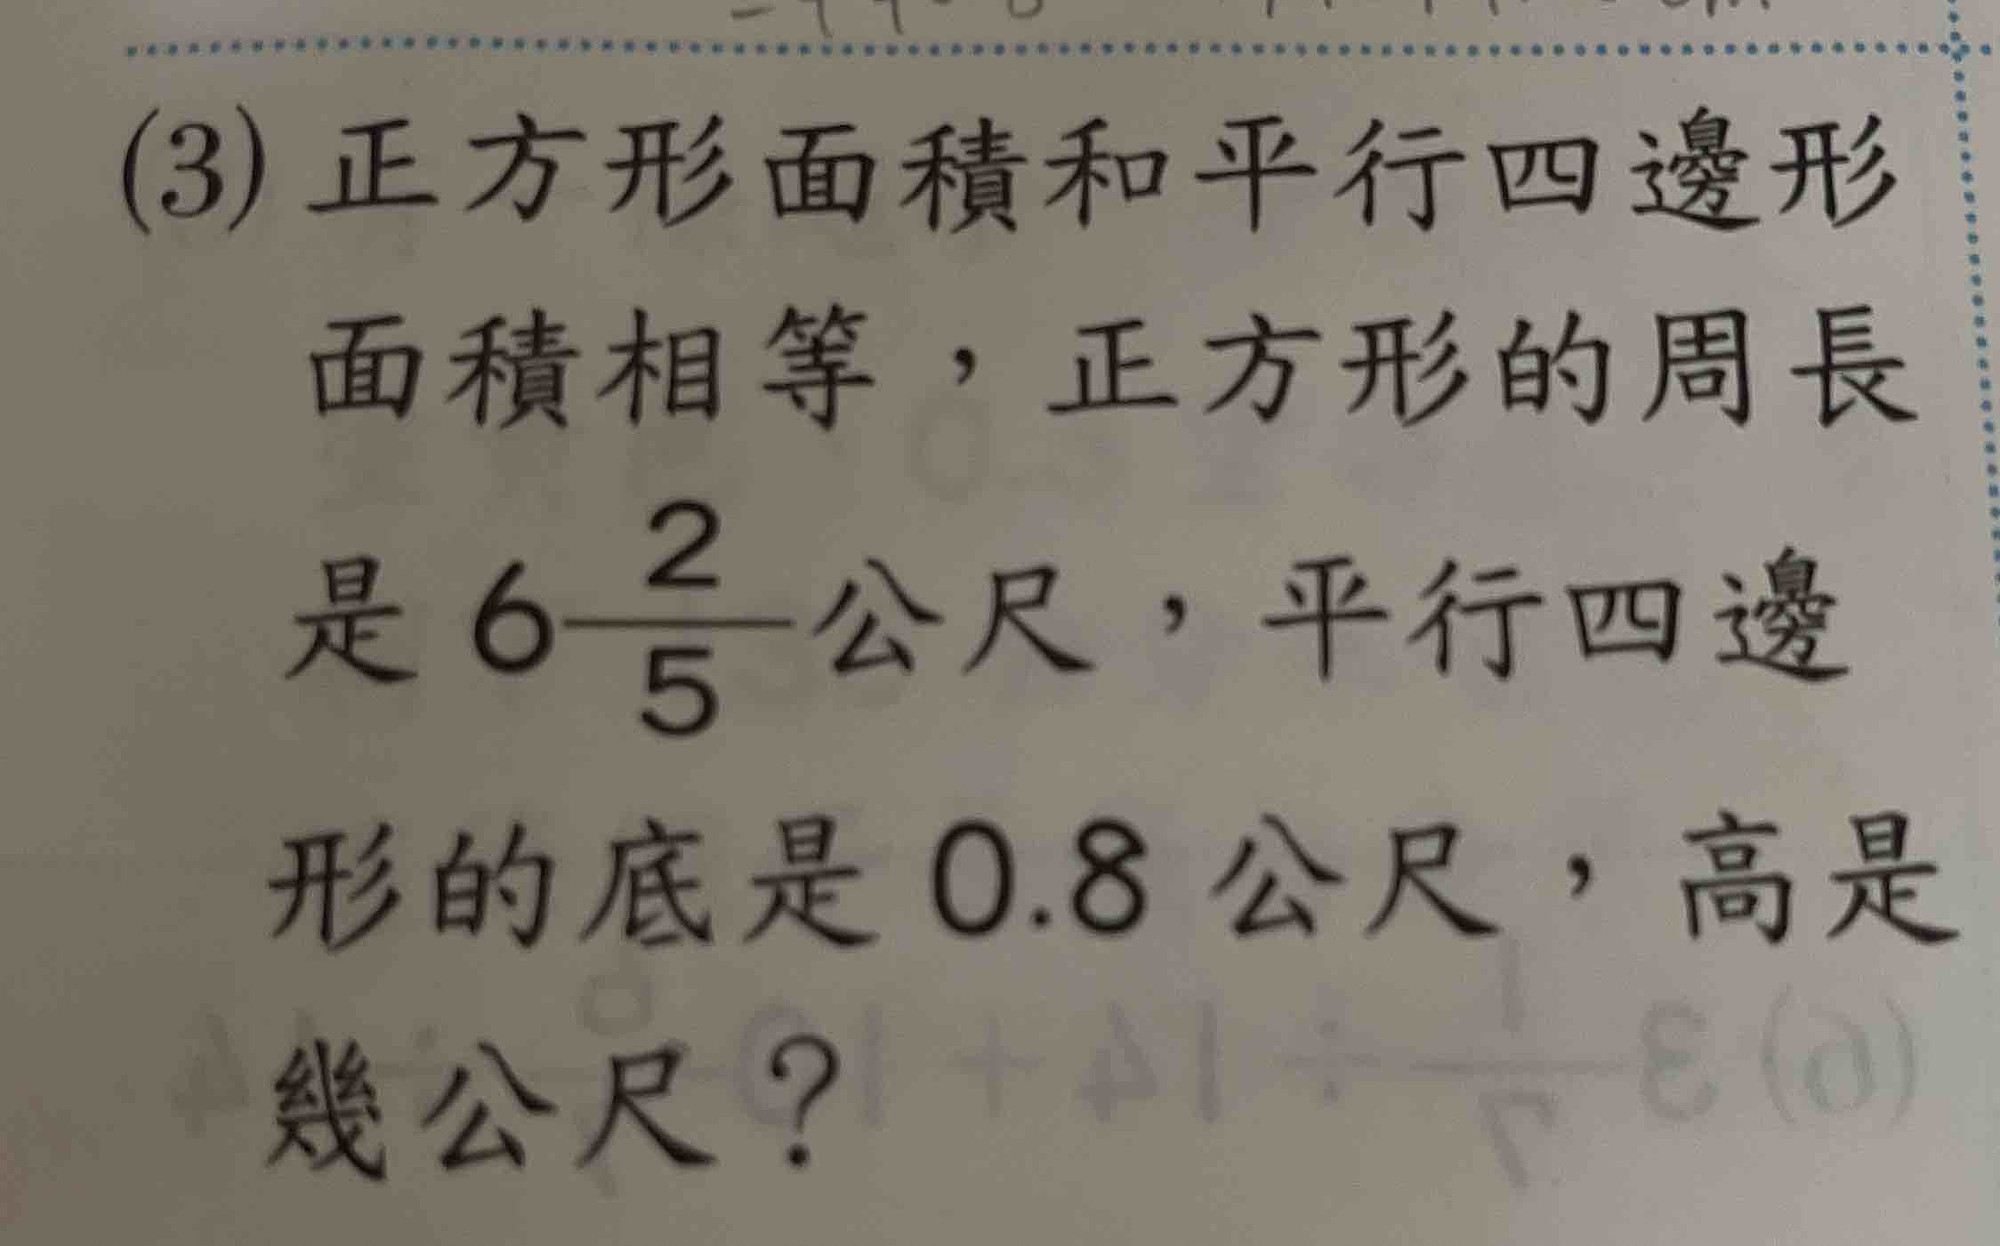 (3) 正方形面積和平行四邊形
面積相等，正方形的周長
是 6 2/5 公尺，平行四邊
形的底是 0.8 公尺，高是
幾公尺？